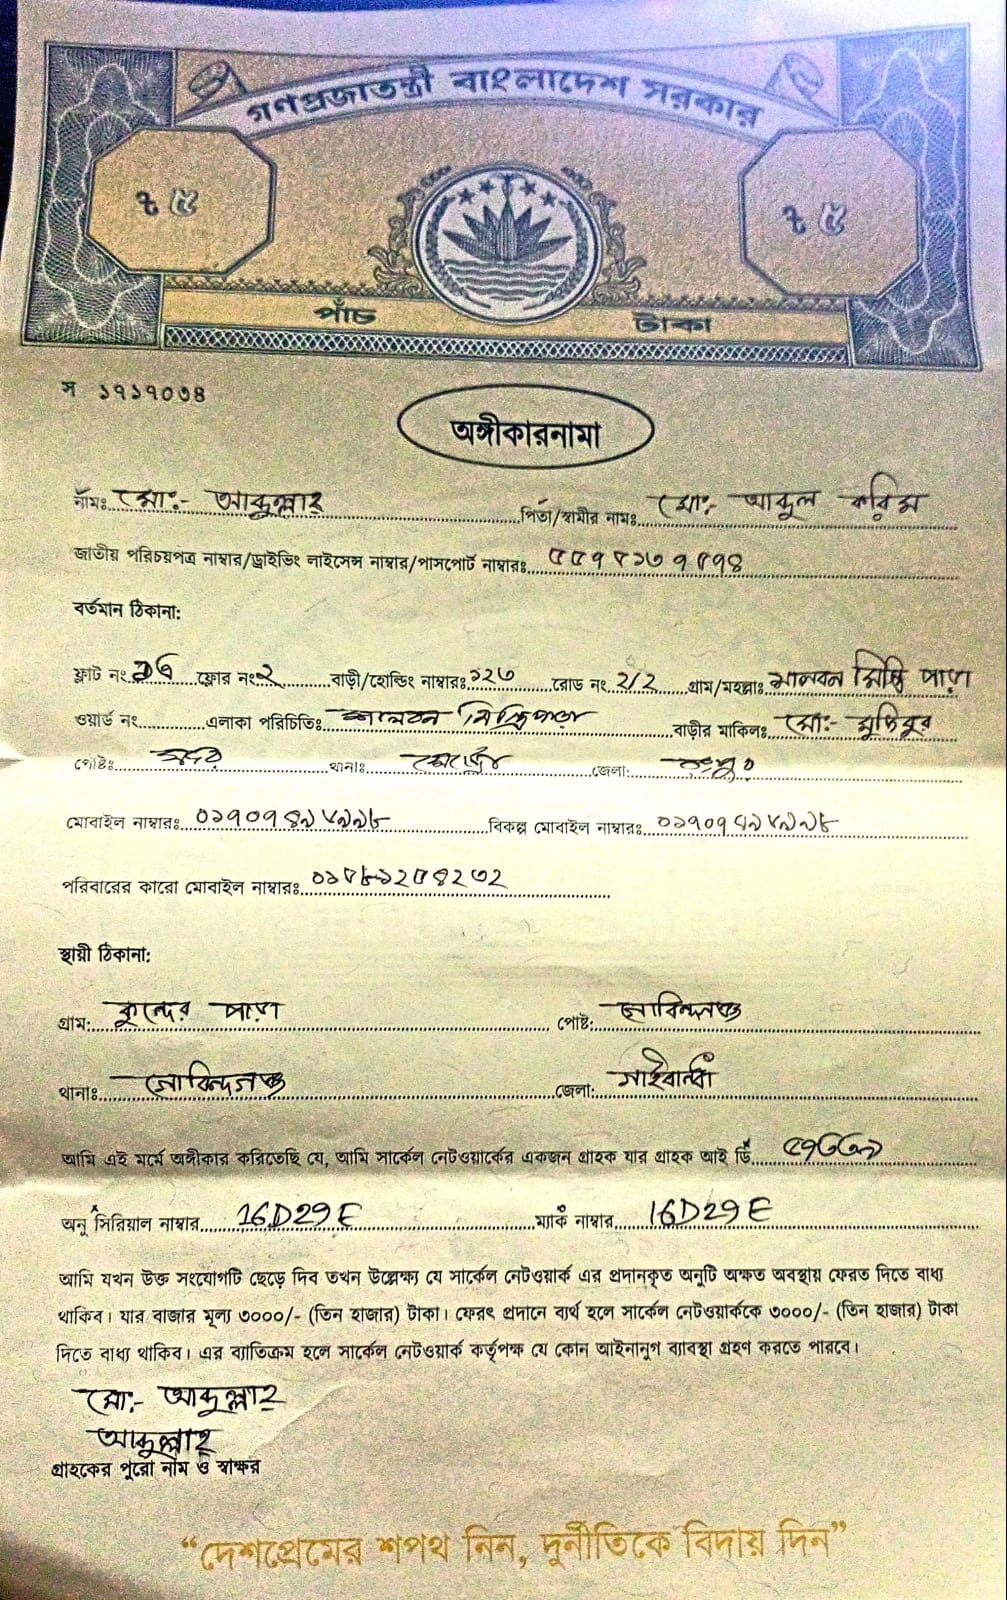 গণপ্রজাতন্ত্রী বাংলাদেশ সরকার
৳ ৫ ৳ ৫
পাঁচ টাকা
স ১৭১৭০৩৪
অঙ্গীকারনামা
নামঃ মো:- আব্দুল্লাহ্ পিতা/স্বামীর নামঃ মো:- আব্দুল করিম
জাতীয় পরিচয়পত্র নাম্বার/ড্রাইভিং লাইসেন্স নাম্বার/পাসপোর্ট নাম্বারঃ
বর্তমান ঠিকানা:
ফ্লাট নং ফ্লোর নং ২ বাড়ী/হোল্ডিং নাম্বারঃ ১২৩ রোড নং ২/২ গ্রাম/মহল্লাঃ শালবন মিস্ত্রি পাড়া
ওয়ার্ড নং এলাকা পরিচিতিঃ শালবন মিস্ত্রিপাড়া বাড়ীর মাকিলঃ মো:-
পোষ্টঃ সদর থানাঃ জেলা: রংপুর
মোবাইল নাম্বারঃ বিকল্প মোবাইল নাম্বারঃ
পরিবারের কারো মোবাইল নাম্বারঃ
স্থায়ী ঠিকানা:
গ্রাম: পাড়া পোষ্ট: গোবিন্দগঞ্জ
থানাঃ গোবিন্দগঞ্জ জেলা: গাইবান্ধা
আমি এই মর্মে অঙ্গীকার করিতেছি যে, আমি সার্কেল নেটওয়ার্কের একজন গ্রাহক যার গ্রাহক আই ডি
অনু সিরিয়াল নাম্বার 16D29E ম্যাক নাম্বার 16D29E
আমি যখন উক্ত সংযোগটি ছেড়ে দিব তখন উল্লেক্ষ্য যে সার্কেল নেটওয়ার্ক এর প্রদানকৃত অনুটি অক্ষত অবস্থায় ফেরত দিতে বাধ্য
থাকিব। যার বাজার মূল্য ৩০০০/- (তিন হাজার) টাকা। ফেরৎ প্রদানে ব্যর্থ হলে সার্কেল নেটওয়ার্ককে ৩০০০/- (তিন হাজার) টাকা
দিতে বাধ্য থাকিব। এর ব্যাতিক্রম হলে সার্কেল নেটওয়ার্ক কর্তৃপক্ষ যে কোন আইনানুগ ব্যাবস্থা গ্রহণ করতে পারবে।
মো:- আব্দুল্লাহ্
আব্দুল্লাহ্
গ্রাহকের পুরো নাম ও স্বাক্ষর
“দেশপ্রেমের শপথ নিন, দুর্নীতিকে বিদায় দিন”